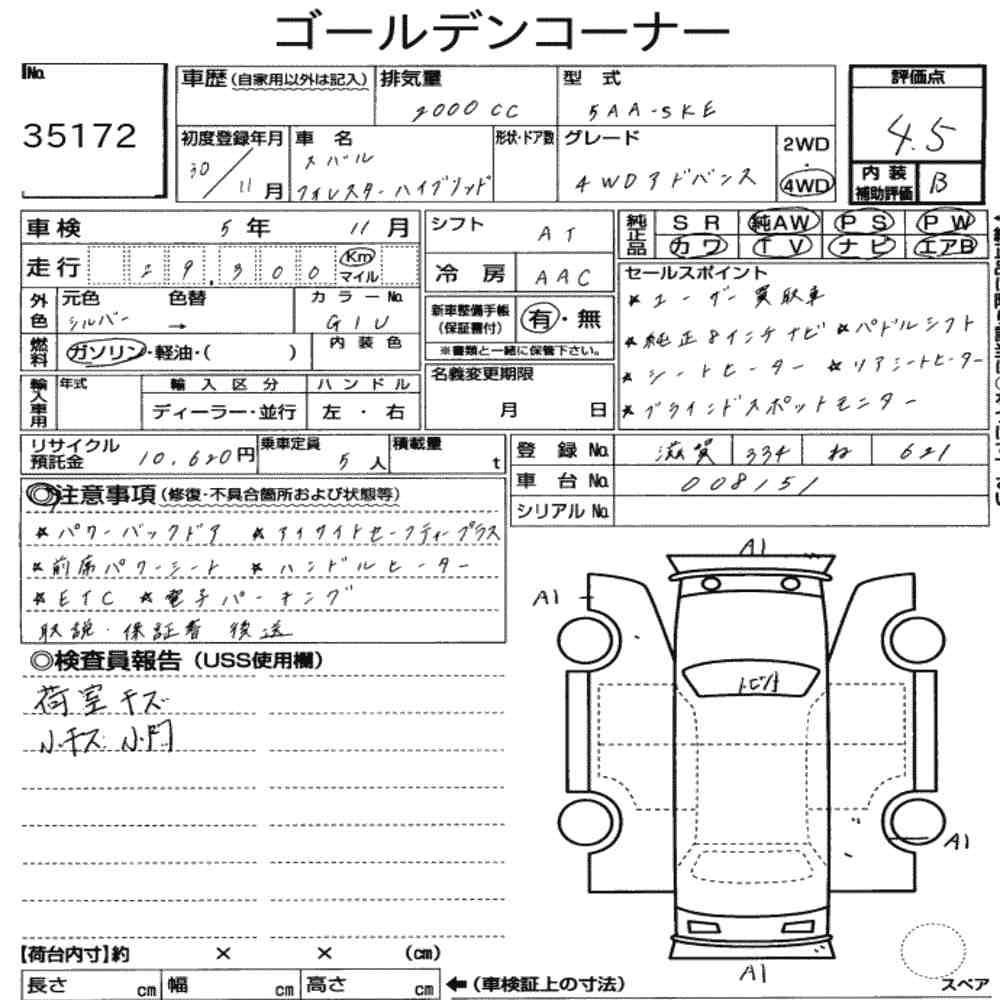 ゴールデンコーナー
No.
35172
車歴(自家用以外は記入)
排気量
2000 CC
型 式
5AA-SKE
評価点
4.5
初度登録年月
30/11月
車 名
スバル
フォレスターハイブリッド
形状・ドア数
グレード
4WDアドバンス
2WD
・
4WD
内装
補助評価
B
車検
5年 11月
走行
29,300
Km
マイル
外色
元色
シルバー
色替
→
カラーNo.
G1U
燃料
ガソリン・軽油・( )
内装色
輸入車用
年式
輸入区分
ディーラー・並行
ハンドル
左・右
シフト
AT
冷房
AAC
新車整備手帳
(保証書付)
有・無
※書類と一緒に保管下さい。
名義変更期限
月 日
純正品
SR 純AW PS PW
カワ TV ナビ エアB
セールスポイント
★ユーザー買取車
★純正8インチナビ ★パドルシフト
★シートヒーター ★リアシートヒーター
★ブラインドスポットモニター
リサイクル
預託金
10,620円
乗車定員
5人
積載量
t
登録No.
滋賀 334 ね 621
車台No.
008151
シリアルNo.
◎注意事項(修復・不具合箇所および状態等)
★パワーバックドア ★アイサイトセーフティープラス
★前席パワーシート ★ハンドルヒーター
★ETC ★電子パーキング
取説・保証書 後送
◎検査員報告(USS使用欄)
荷室キズ
小キズ 小凹
A1
A1
トビ小
A1
A1
スペア
【荷台内寸】約 × × (cm)
長さ cm 幅 cm 高さ cm
←(車検証上の寸法)